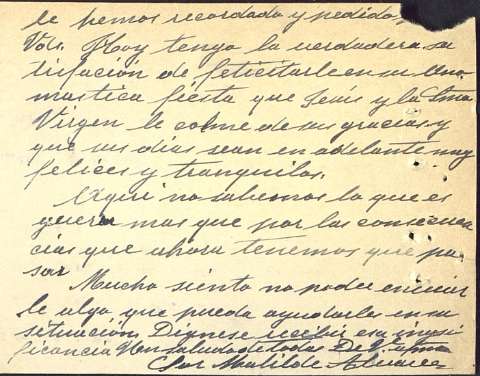 le hemos recordado y pedido,
Vds. Hoy tengo la verdadera sa
tisfacion de felicitarle en su Ono-
mastica fiesta que Jesús y la Sma
Virgen le colme de sus gracias y
que sus dias sean en adelante muy
felices y tranquilos.
Aqui no sabemos lo que es
guerra mas que por las consecuen
cias que ahora tenemos que pa
sar
Mucho siento no poder enviar
le algo que pueda ayudarles en su
situacion. Dignese recibir esa insigni
ficancia Un saludo de todas De V.
Sor Matilde Alvarez